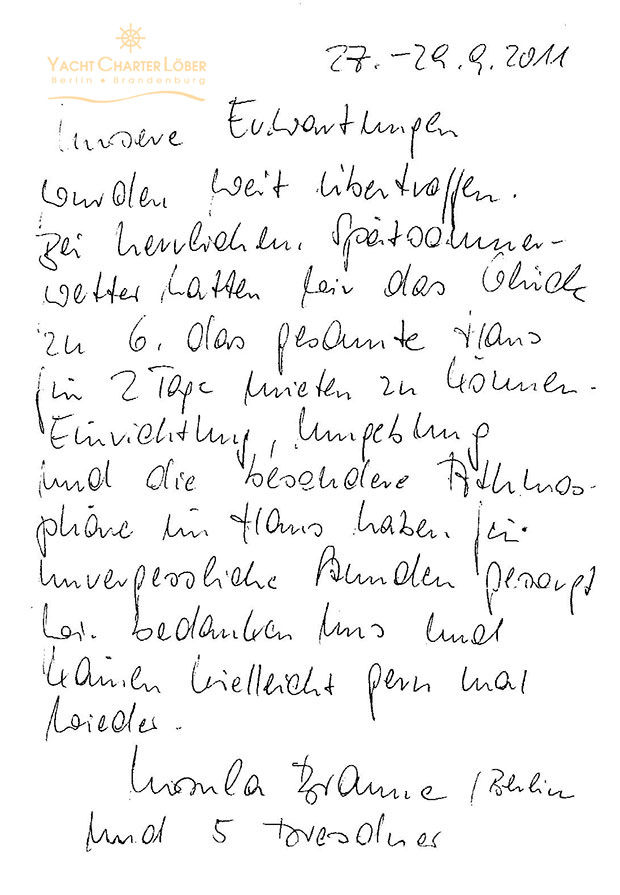 YACHT CHARTER LÖBER
Berlin • Brandenburg
27.-29.9.2011
Unsere Erwartungen
wurden weit übertroffen.
Bei herrlichen Spätsommer-
wetter hatten wir das Glück
zu 6. das gesamte Haus
für 2 Tage mieten zu können.
Einrichtung, Umgebung
und die besondere Athmos-
phäre im Haus haben für
unvergessliche Stunden gesorgt
Wir bedanken uns und
kämen vielleicht gern mal
wieder.
Ursula Braune / Berlin
und 5 Dresdner